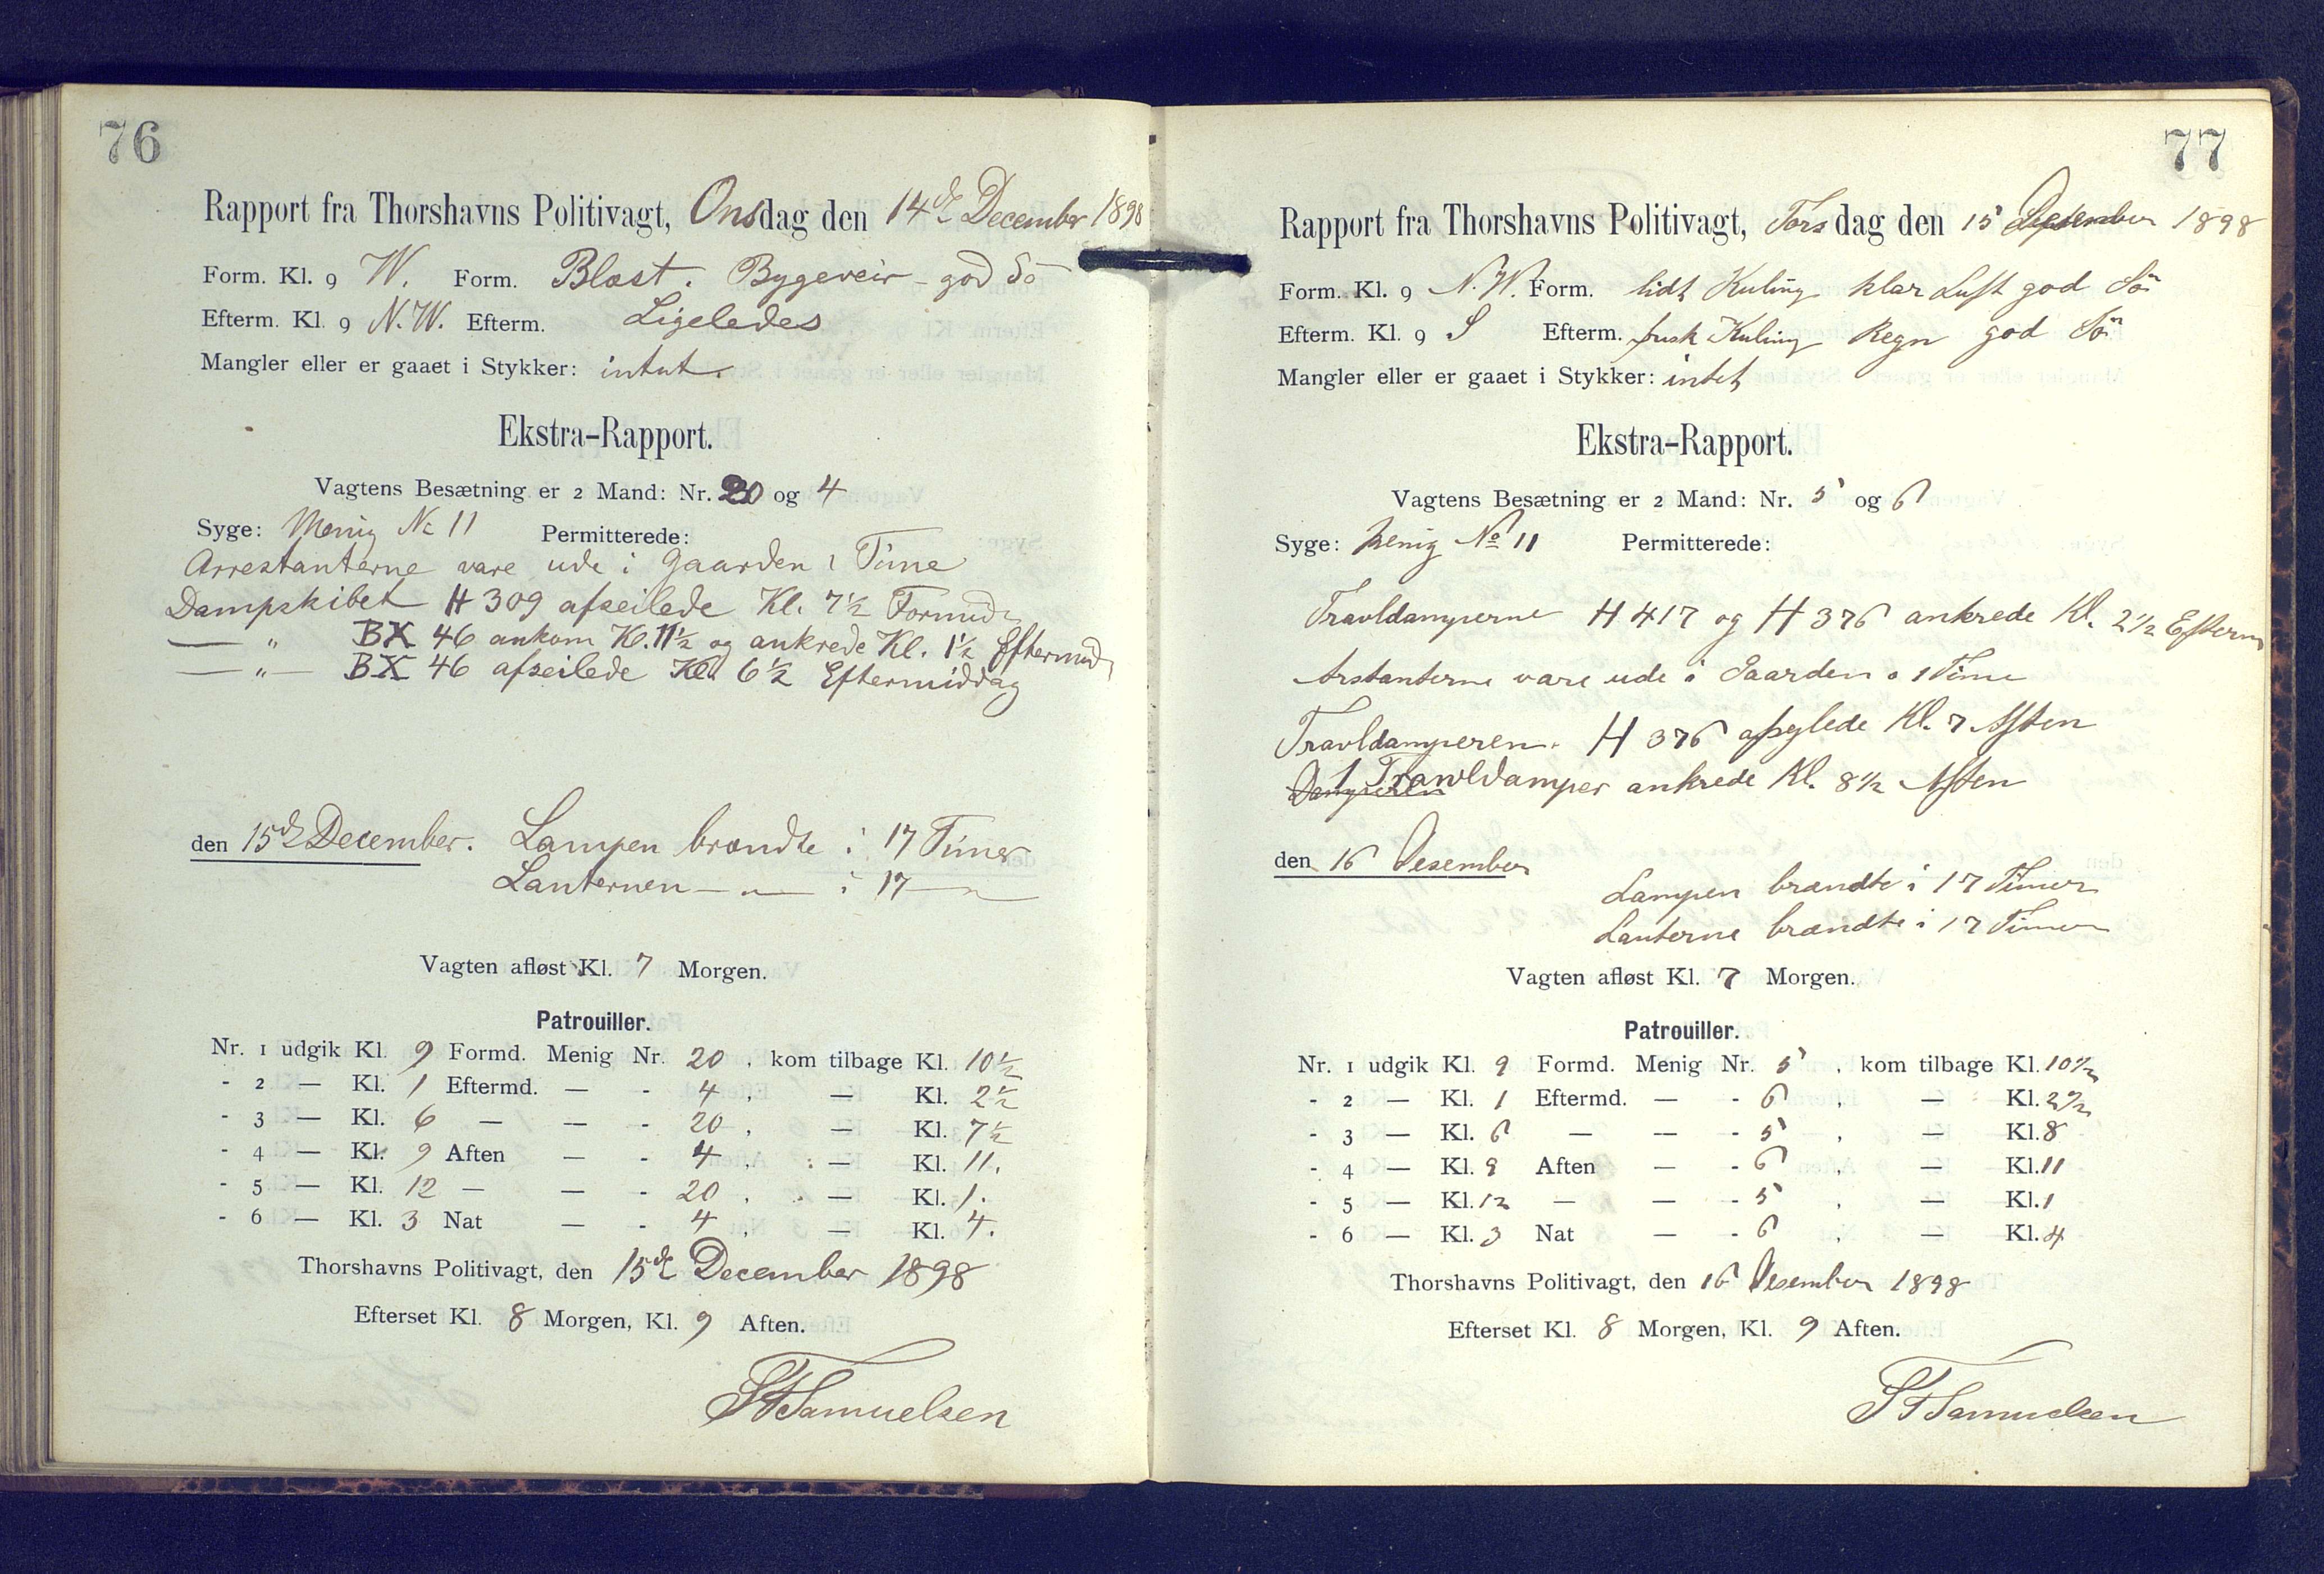 76
Rapport fra Thorshavns Politivagt, Onsdag den 14de December 1898
Form. Kl. 9 W. Form. Blæst. Bygeveir - god Sö
Efterm. Kl. 9 N.W. Efterm. Ligeledes
Mangler eller er gaaet i Stykker: intet.
Ekstra-Rapport.
Vagtens Besætning er 2 Mand: Nr. 20 og 4
Syge: Menig No 11 Permitterede:
Arrestanterne vare ude i Gaarden 1 Time
Dampskibet H 309 afseilede Kl. 7½ Formid
— " BX 46 ankom Kl. 11½ og ankrede Kl. 1½ Eftermid
— " — BX 46 afseilede Kl. 6½ Eftermiddag
den 15de December. Lampen brændte i 17 Timer
Lanternen — " — i 17 — "
Vagten afløst Kl. 7 Morgen.
Patrouiller.
Nr. 1 udgik Kl. 9 Formd. Menig Nr. 20, kom tilbage Kl. 10½
- 2 — Kl. 1 Eftermd. — - 4, — Kl. 2½
- 3 — Kl. 6 — — - 20, — Kl. 7½
- 4 — Kl. 9 Aften — - 4, — Kl. 11.
- 5 — Kl. 12 — — - 20, — Kl. 1.
- 6 — Kl. 3 Nat — - 4, — Kl. 4.
Thorshavns Politivagt, den 15de December 1898
Efterset Kl. 8 Morgen, Kl. 9 Aften.
Samuelsen
77
Rapport fra Thorshavns Politivagt, Torsdag den 15 Desember 1898
Form. Kl. 9 N.W. Form. lidt Kuling klar Luft god Sö
Efterm. Kl. 9 S Efterm. frisk Kuling Regn god Sö
Mangler eller er gaaet i Stykker: intet
Ekstra-Rapport.
Vagtens Besætning er 2 Mand: Nr. 5 og 6
Syge: Menig No 11 Permitterede:
Travldamperne H 417 og H 376 ankrede Kl. 2½ Efterm
Arstanterne vare ude i Gaarden 1 Time
Travldamperen H 376 afseglede Kl. 7 Aften
Damperen 1 Trawldamper ankrede Kl. 8½ Aften
den 16 Desember
Lampen brændte i 17 Timer
Lanterne brændte i 17 Timer
Vagten afløst Kl. 7 Morgen.
Patrouiller.
Nr. 1 udgik Kl. 9 Formd. Menig Nr. 5, kom tilbage Kl. 10½
- 2 — Kl. 1 Eftermd. — - 6, — Kl. 2½
- 3 — Kl. 6 — — - 5, — Kl. 8
- 4 — Kl. 9 Aften — - 6, — Kl. 11
- 5 — Kl. 12 — — - 5, — Kl. 1
- 6 — Kl. 3 Nat — - 6, — Kl. 4
Thorshavns Politivagt, den 16 Desember 1898
Efterset Kl. 8 Morgen, Kl. 9 Aften.
Samuelsen